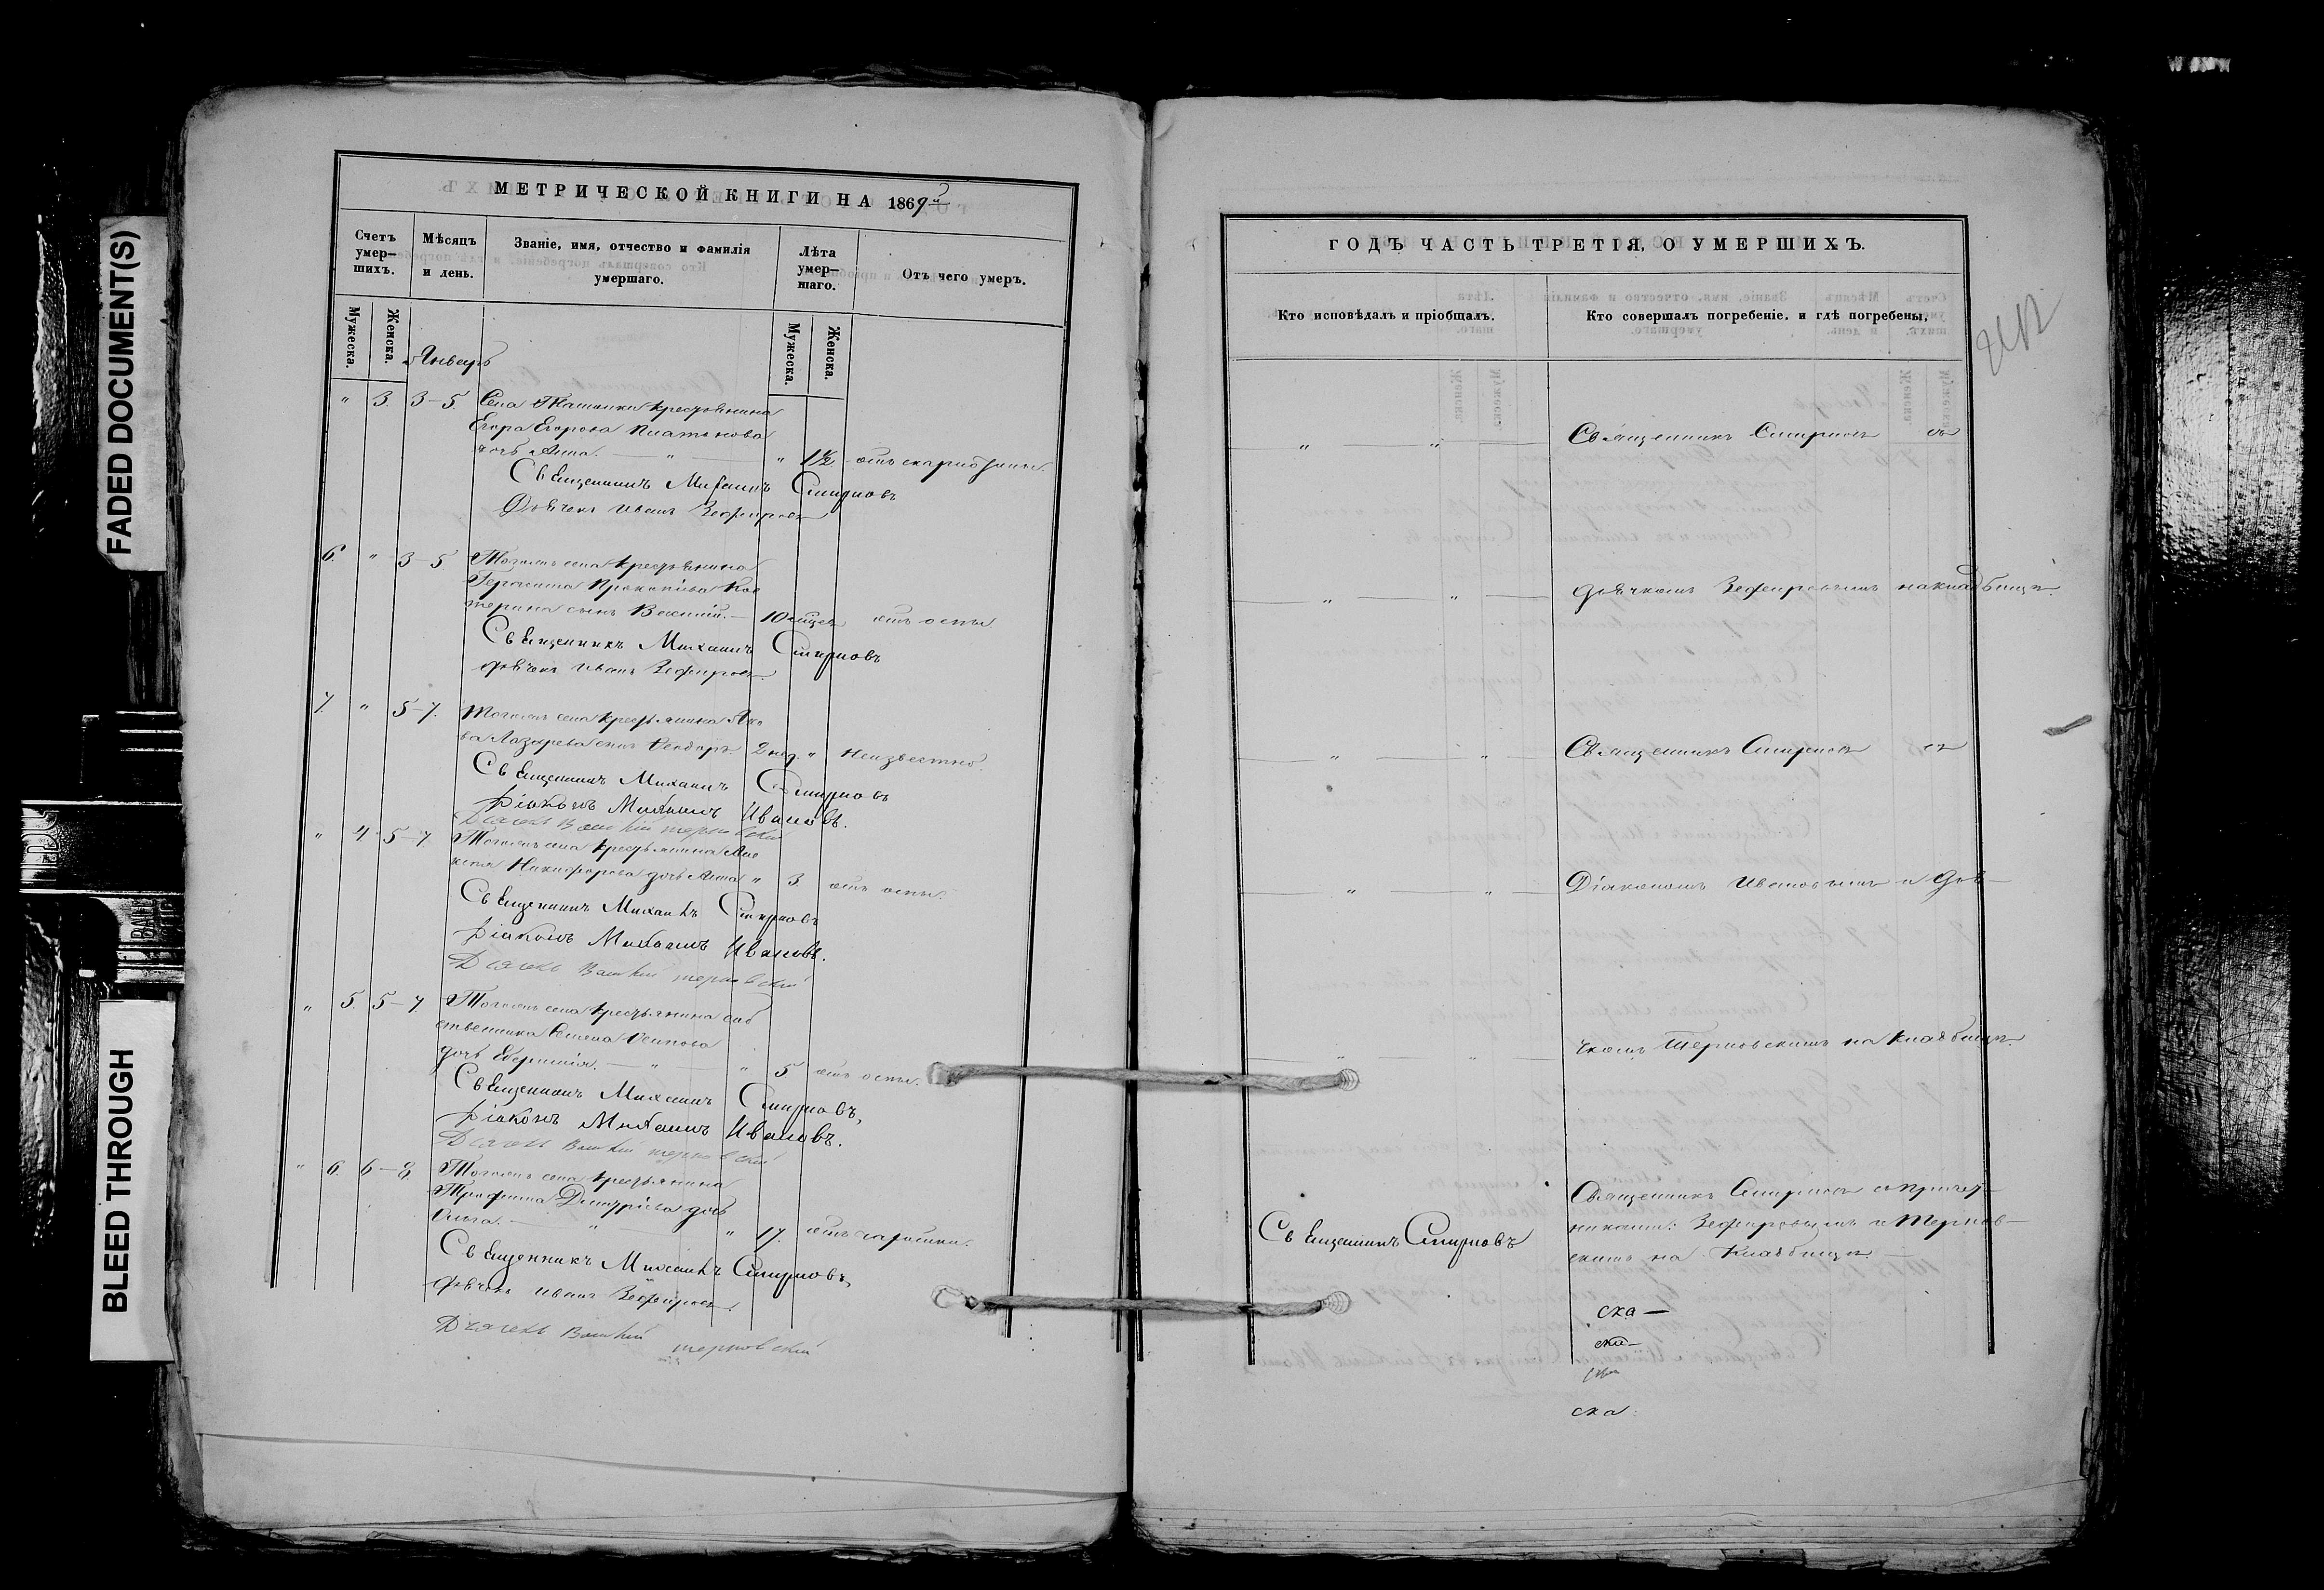 FADED DOCUMENT(S)
BLEED THROUGH
МЕТРИЧЕСКОЙ КНИГИ НА 1869й
Счетъ умер— шихъ.
Мѣсяцъ и день.
Званіе, имя, отчество и фамилія умершаго.
Лѣта умер— шаго.
Отъ чего умеръ.
Мужеска.
Женска.
Мужеска.
Женска.
Январь
" 3. 3-5. Села крестьянина
Егора Егорова
дочь Анна. — " — " 1½ отъ
Священникъ Михаилъ Смирновъ
Дьячекъ Иванъ Зефировъ
6. " 3-5 Тогожъ села крестьянина
Герасима Прокопіева
сынъ Василій. — 10 отъ оспы.
Священникъ Михаилъ Смирновъ
Дьячекъ Иванъ Зефировъ.
7. " 5-7. Тогожъ села крестьянина Яко
ва Лазарева сынъ Феодоръ. 2 нед. " Неизвестно.
Священникъ Михаилъ Смирновъ
Діаконъ Михаилъ Ивановъ.
Дьячекъ Василій Терновскій
" 4. 5-7. Тогожъ села крестьянина Але
ксѣя Никифорова дочь Анна " 3 отъ оспы.
Священникъ Михаилъ Смирновъ
Діаконъ Михаилъ Ивановъ.
Дьячекъ Василій Терновскій
" 5. 5-7 Тогожъ села крестьянина соб
ственника Семена Осипова
дочь — " — " 5 отъ оспы.
Священникъ Михаилъ Смирновъ,
Діаконъ Михаилъ Ивановъ.
Дьячекъ Василій Терновскій
" 6. 6-8. Тогожъ села крестьянина
Трофима Дмитріева дочь
Ольга. — " — " 17. отъ горячки.
Священникъ Михаилъ Смирновъ,
Дьячекъ Иванъ Зефировъ.
Дьячекъ Василій Терновскій
ГОДЪ ЧАСТЬ ТРЕТІЯ, О УМЕРШИХЪ.
Кто исповѣдалъ и пріобщалъ.
Кто совершалъ погребеніе. и гдѣ погребены,
" — " — Священникъ Смирновъ съ
" — " — Дьячкомъ Зефировымъ на кладбищѣ.
" — " — Священникъ Смирновъ съ
" — " — Діакономъ Ивановымъ и Дья—
" — " — чкомъ Терновскимъ на кладбищѣ.
Священникъ Смирновъ съ причет—
Священникъ Смирновъ никами: Зефировымъ и Тернов—
скимъ на Кладбищѣ.
ска —
ска